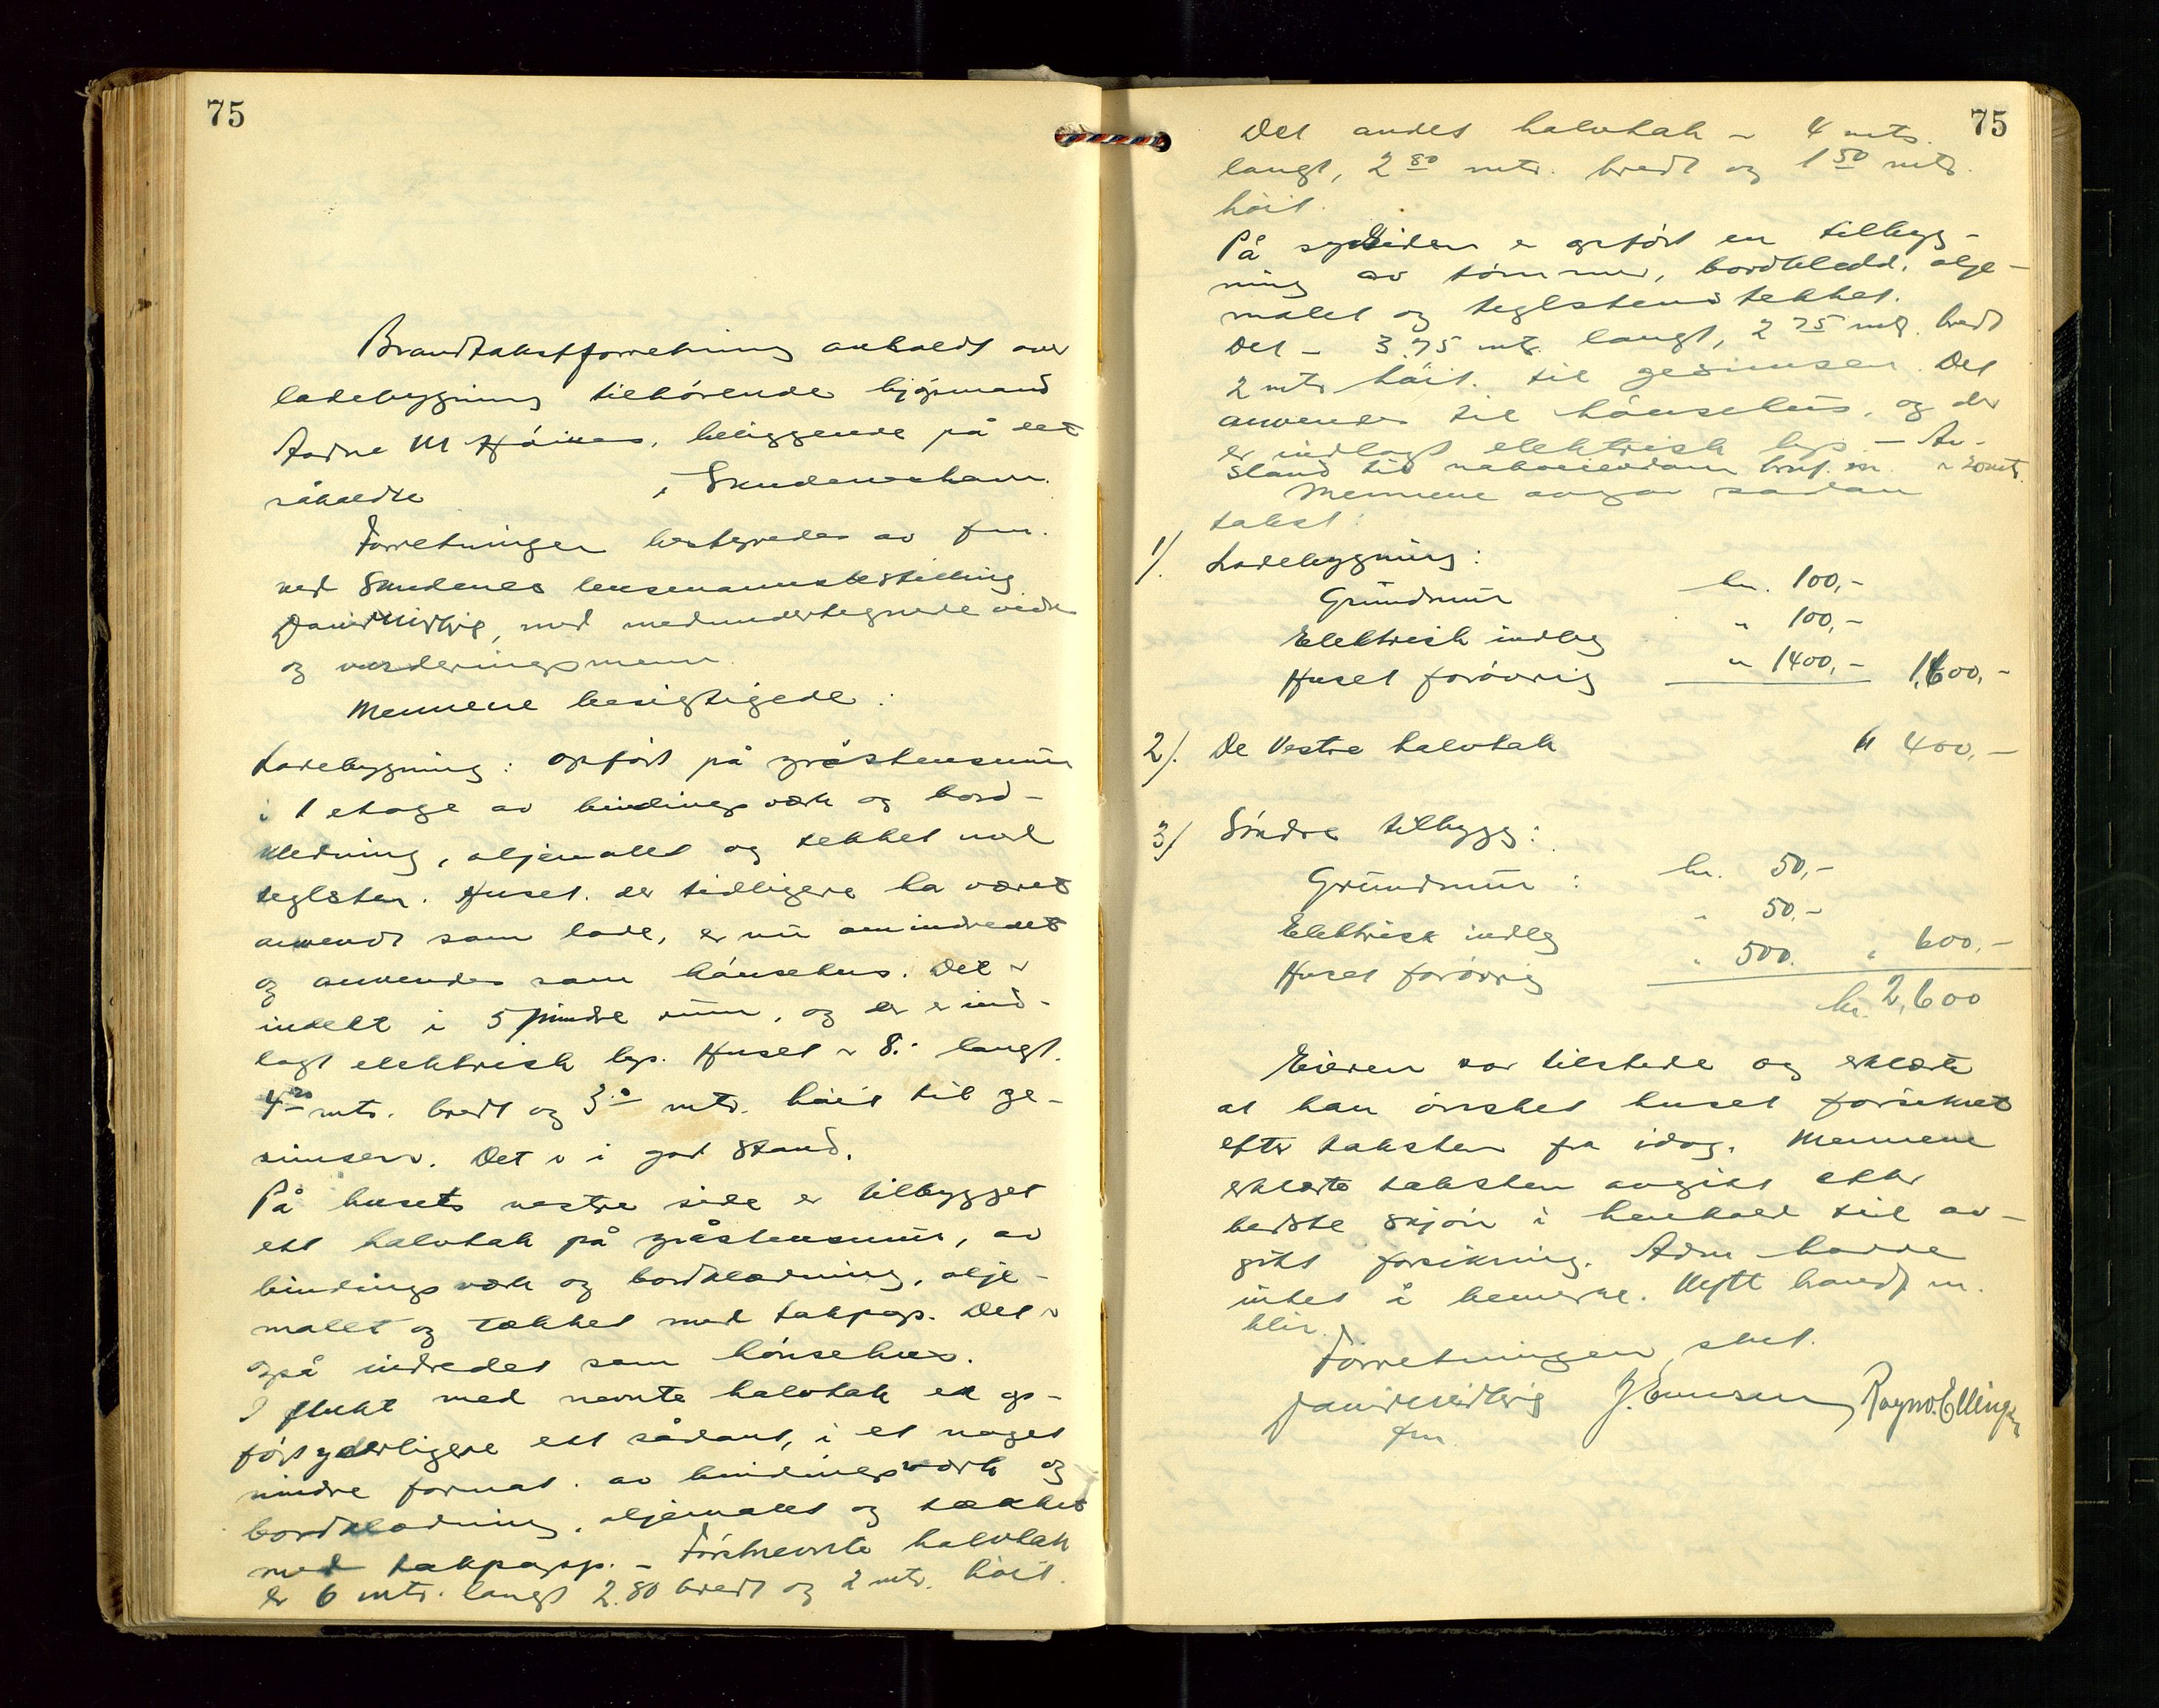 75
Brandtakstforretning avholdt over
ladebygning tilhörende
Andne M , beliggende på det
såkaldte i Skudeneshavn.
Forretningen bestyredes av fm.
ved Skudenes lensmannsbestilling
, med medundertegnede vidn
og vurderingsmenn.
Mennene besigtigede:
Ladebygning: opfört på gråstensmur
i 1 etage av bindingsværk og bord-
kledning, oljemalet og tekket med
teglsten. Huset, der tidligere ha været
anvendt som lade, er nu omindredet
og anvendes som hönsehus. Det er
indelt i 5 mindre rum, og der er ind-
lagt elektrisk lys. Huset er 8.- langt.
4 20 mtr. bredt og 3.0 mtr. höit til ge-
simsen. Det er i god Stand.
På husets vestre side er tilbygget
ett halvtak på gråstensmur, av
bindingsværk og bordklædning, olje-
malet og tækket med takpap. Det er
også indredet som hönsehus.
I flukt med nevnte halvtak er op-
fört yderligere ett sådant, i et noget
mindre format. av bindingsværk og
bordklædning, oljemalet og tækket
med takpapp. - Förstnevnte halvtak
er 6 mtr. langt 2.80 bredt og 2 mtr. höit.
75
Det andet halvtak er 4 mtr.
langt, 2 80 mtr. bredt og 1 50 mtr.
höit.
På sydsiden er opfört en tilbyg-
ning av tömmer, bordkledd, olje-
malet og teglstens tekket.
Det er 3.75 mtr. langt, 2 75 mtr. bredt
2 mtr höit. til gesimsen. Det
anvendes til hönsehus, og der
er indlagt elektrisk lys - Av-
stand til naboeiendom er 20 mtr.
Mennene avgav sådan
takst:
1). Ladebygning:
Grundmur kr. 100,-
Elektrisk indleg " 100,-
Huset forövrig " 1400,- 1,600,-
2). De Vestre halvtak " 400,-
3) Söndre tilbygg:
Grundmur: kr. 50,-
Elektrisk indleg " 50,-
Huset forövrig " 500. " 600,-
kr. 2,600
Eieren var tilstede og erklærte
at han önsket huset forsikret
efter taksten fra idag. Mennene
erklærte taksten avgitt efter
bedste skjön i henhold til av-
gitt forsikring. Adm. havde
intet å bemerke.
blir.
Forretningen slut.
J. Ragnv. Ellingsen
fm.